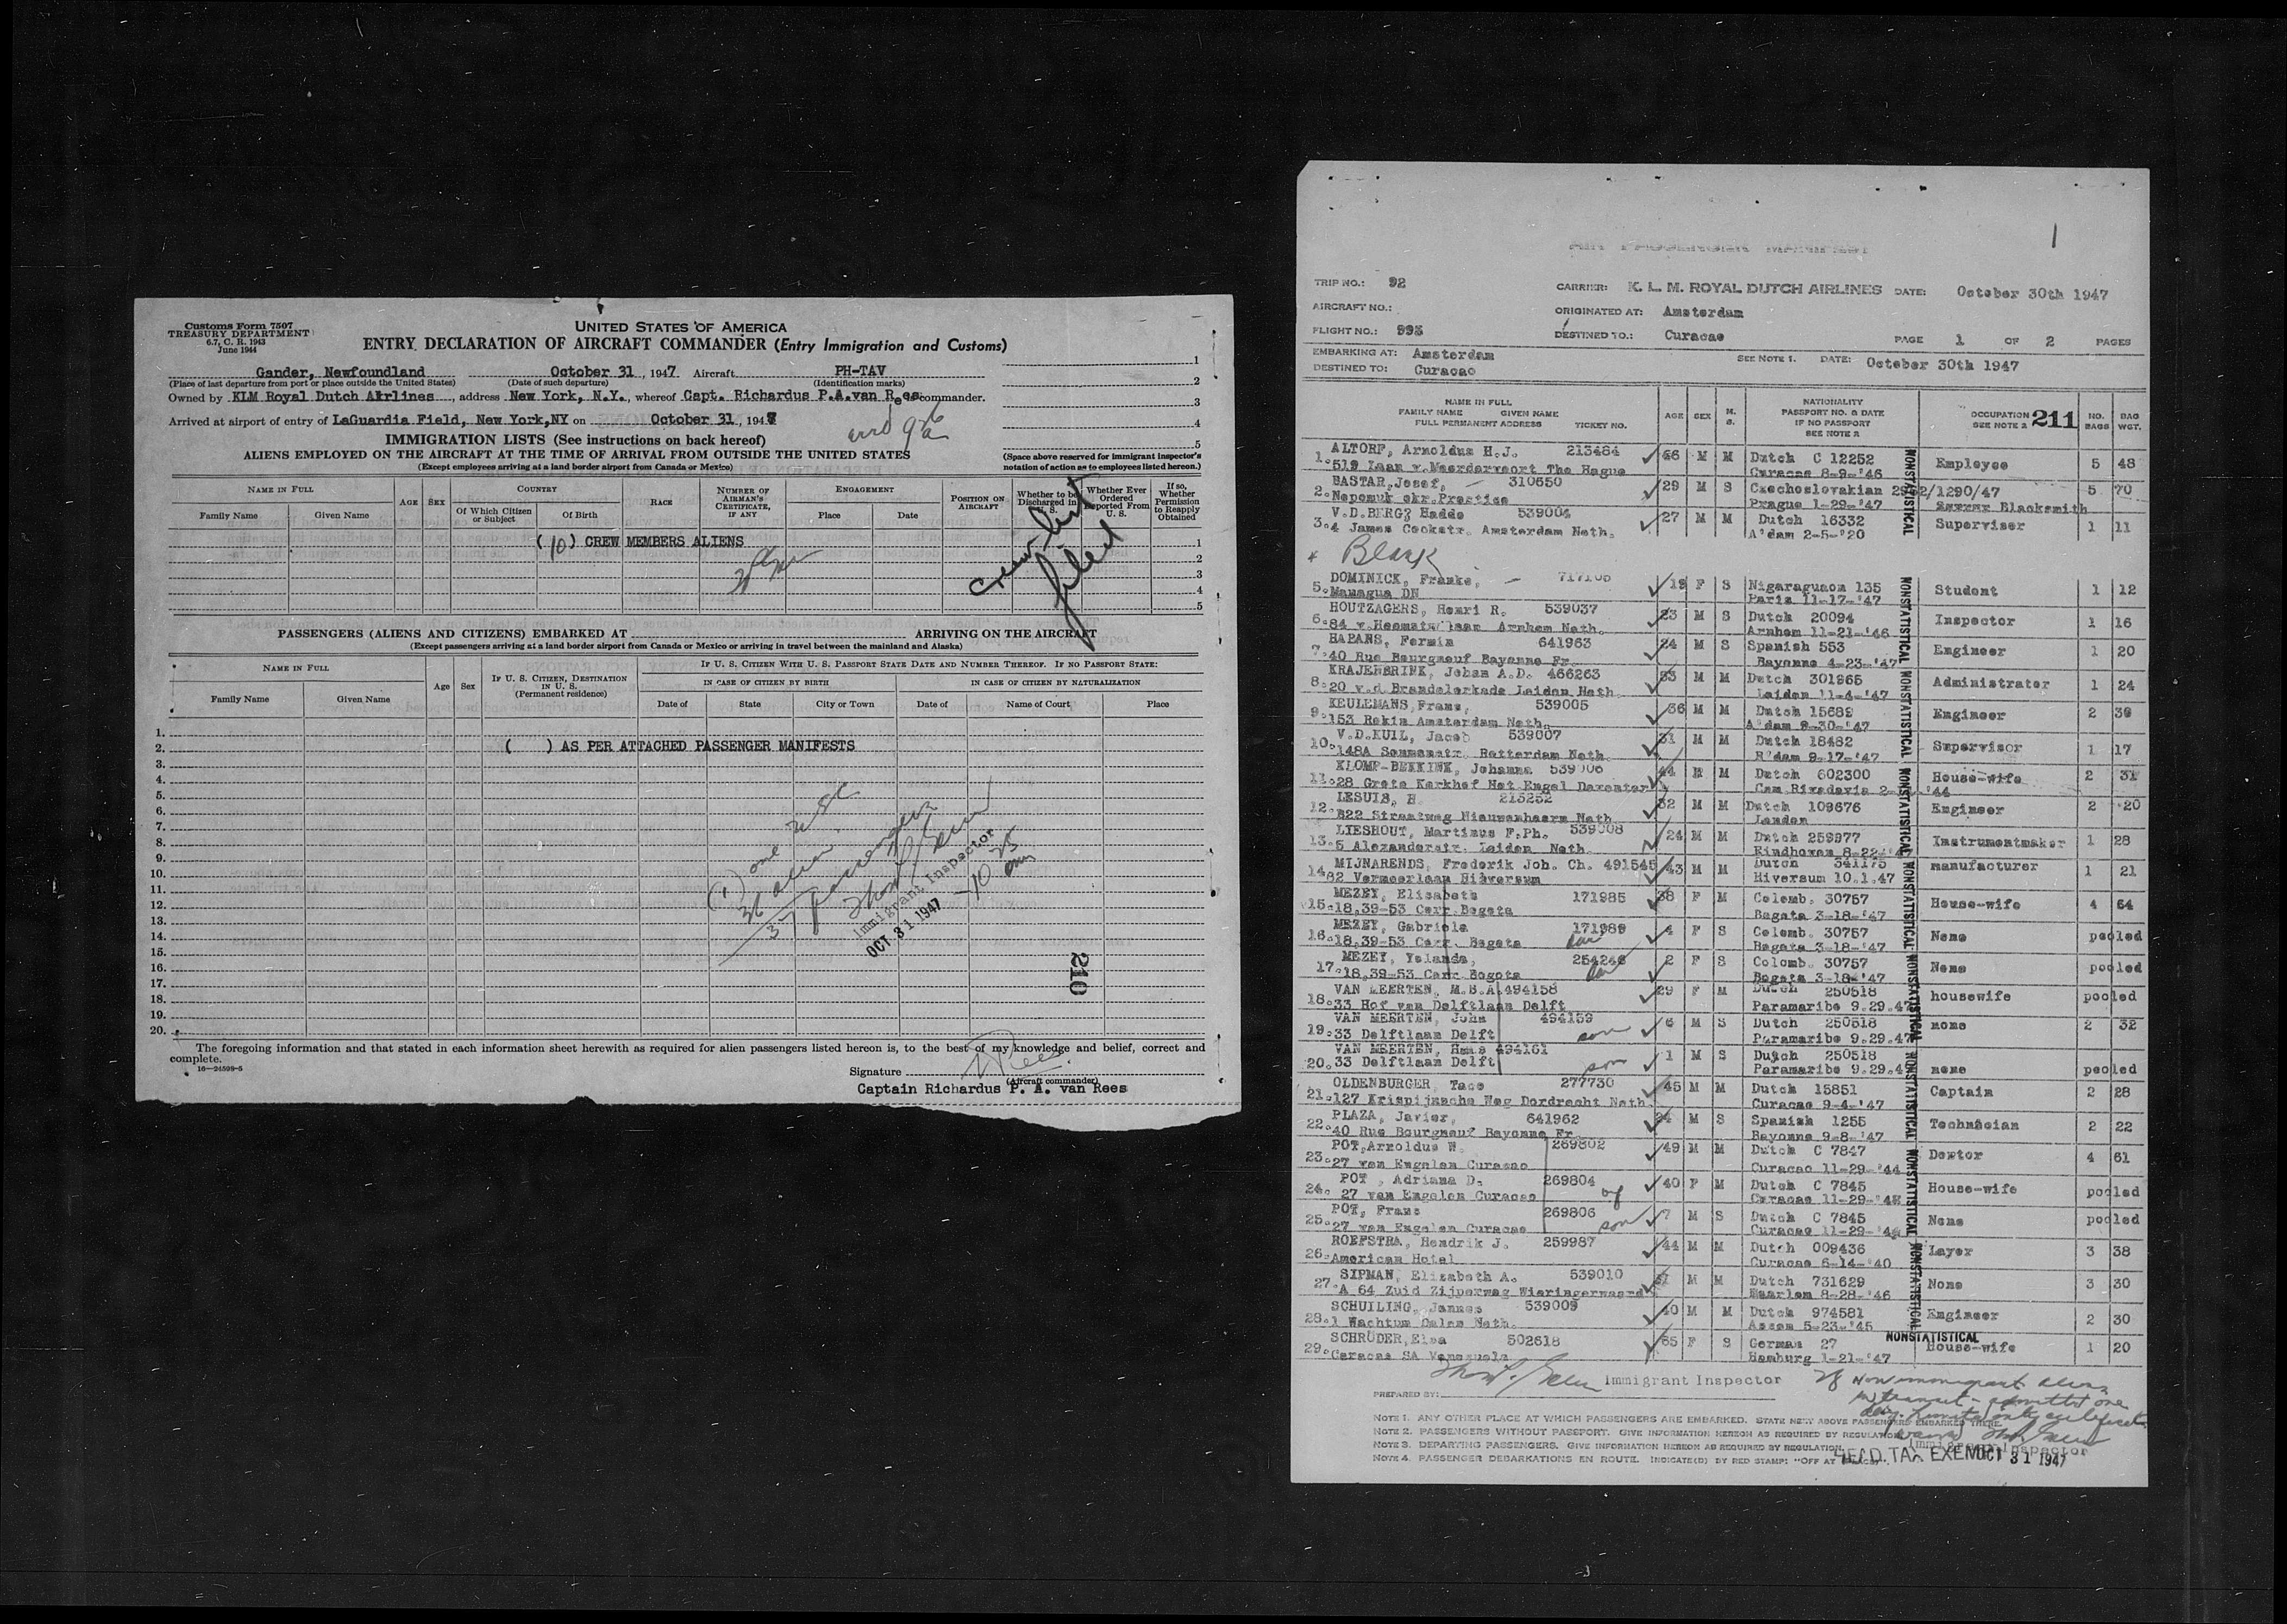 Customs Form 7507
TREASURY DEPARTMENT
6.7, C. R. 1943
June 1944
UNITED STATES OF AMERICA
ENTRY DECLARATION OF AIRCRAFT COMMANDER (Entry Immigration and Customs)
Gander, Newfoundland October 31, 1947 Aircraft PH-TAV
(Place of last departure from port or place outside the United States) (Date of such departure) (Identification marks)
Owned by KLM Royal Dutch Airlines, address New York, N.Y., whereof Capt. Richardus P.A.van Rees commander.
Arrived at airport of entry of LaGuardia Field, New York,NY on October 31, 194
IMMIGRATION LISTS (See instructions on back hereof)
ALIENS EMPLOYED ON THE AIRCRAFT AT THE TIME OF ARRIVAL FROM OUTSIDE THE UNITED STATES
(Except employees arriving at a land border airport from Canada or Mexico)
1
2
3
4
5
(Space above reserved for immigrant inspector's notation of action as to employees listed hereon.)
NAME IN FULL
Family Name Given Name
AGE SEX
COUNTRY
Of Which Citizen or Subject Of Birth
RACE
NUMBER OF AIRMAN'S CERTIFICATE, IF ANY
ENGAGEMENT
Place Date
POSITION ON AIRCRAFT
Whether to be Discharged in U. S.
Whether Ever Ordered Deported From U. S.
If so, Whether Permission to Reapply Obtained
(10) CREW MEMBERS ALIENS
Crew list filed
1
2
3
4
5
PASSENGERS (ALIENS AND CITIZENS) EMBARKED AT ARRIVING ON THE AIRCRAFT
(Except passengers arriving at a land border airport from Canada or Mexico or arriving in travel between the mainland and Alaska)
NAME IN FULL
Family Name Given Name
Age Sex
IF U. S. CITIZEN, DESTINATION IN U. S. (Permanent residence)
IF U. S. CITIZEN WITH U. S. PASSPORT STATE DATE AND NUMBER THEREOF. IF NO PASSPORT STATE:
IN CASE OF CITIZEN BY BIRTH IN CASE OF CITIZEN BY NATURALIZATION
Date of State City or Town Date of Name of Court Place
1.
2. ( ) AS PER ATTACHED PASSENGER MANIFESTS
3.
4.
5.
6.
7.
8.
9.
10.
11.
12.
13.
14.
15.
16.
17.
18.
19.
20.
(1) one USC
36 aliens
37 passengers
Immigrant Inspector
OCT 31 1947
10 25 am
210
The foregoing information and that stated in each information sheet herewith as required for alien passengers listed hereon is, to the best of my knowledge and belief, correct and complete.
16—24598-5
Signature
(Aircraft commander)
Captain Richardus P. A. van Rees
1
AIR PASSENGER MANIFEST
TRIP NO.: 92 CARRIER: K. L. M. ROYAL DUTCH AIRLINES DATE: October 30th 1947
AIRCRAFT NO.: ORIGINATED AT: Amsterdam
FLIGHT NO.: 993 DESTINED TO.: Curacao PAGE 1 OF 2 PAGES
EMBARKING AT: Amsterdam SEE NOTE 1. DATE: October 30th 1947
DESTINED TO: Curacao
NAME IN FULL
FAMILY NAME GIVEN NAME
FULL PERMANENT ADDRESS TICKET NO.
AGE SEX M. S.
NATIONALITY
PASSPORT NO. & DATE
IF NO PASSPORT
SEE NOTE 2
OCCUPATION
SEE NOTE 2
211
NO. BAGS
BAG WGT.
ALTORF, Arnoldus H.J. 213484 46 M M Dutch C 12252 Employee 5 48
1. 519 Laan v.Meerdervoort The Hague Curacao 8-9-'46
BASTAR,Josef, 310650 29 M S Czechoslovakian 2962/1290/47 5 70
2. Nepomuk okr.Prestice Prague 1-29-'47 Blacksmith
V.D.BERG, Hadde 539004 27 M M Dutch 16332 Supervisor 1 11
3.4 James Cookstr. Amsterdam Neth. A'dam 2-5-'20
Blank
DOMINICK, Franke, 717105 19 F S Nigaraguaom 135 Student 1 12
5. Managua DN Paris 11-17-'47
HOUTZAGERS, Henri R. 539037 23 M S Dutch 20094 Inspector 1 16
6. 84 v.Heemstralaan Arnhem Neth. Arnhem 11-21-'46
HAPANS, Fermin 641963 24 M S Spanish 553 Engineer 1 20
7. 40 Rue Bourgneuf Bayonne Fr. Bayonne 4-23-'47
KRAJENBRINK, Johan A.D. 466263 53 M M Dutch 301965 Administrator 1 24
8. 20 v.d. Brandelerkade Leiden Neth. Leiden 11-4-'47
KEULEMANS,Frans, 539005 36 M M Dutch 15682 Engineer 2 39
9. 153 Rokin Amsterdam Neth. A'dam 8-30-'47
V.D.KUIL, Jacob 539007 31 M M Dutch 18482 Supervisor 1 17
10. 148A Sommenstr. Rotterdam Neth. R'dam 9-17-'47
KLOMP-BEKKINK, Johanna 539006 44 M M Dutch 602300 House-wife 2 31
11. 28 Grote Kerkhof Het Engel Deventer Com Rivadavia 2- '44
LESUIS, H 213252 32 M M Dutch 109676 Engineer 2 20
12. 822 Straatweg Nieuwenhoorn Neth. London
LIESHOUT, Martinus F.Ph. 539008 24 M M Dutch 259977 Instrumentmaker 1 28
13. 5 Alexanderstr. Leiden Neth. Eindhoven 8-22-'4
MIJNARENDS, Frederik Joh. Ch. 491545 43 M M Dutch 341175 manufacturer 1 21
14. 82 Vermeerlaan Hilversum Hiversum 10.1.47
MEZEY, Elisabeth 171985 38 F M Colomb. 30757 House-wife 4 64
15. 18,39-53 Carr.Bogota Bagata 3-18-'47
MEZEY, Gabriela 171989 4 F S Colomb. 30757 None pooled
16. 18,39-53 Carr. Bogata Bagata 3-18-'47
MEZEY, Yolanda, 254246 2 F S Colomb. 30757 None pooled
17. 18,39-53 Carr.Bogota Bogata 3-18-'47
VAN MEERTEN, M.B.A. 494158 29 F M Dutch 250518 housewife pooled
18. 33 Hof van Delftlaan Delft Paramaribo 9.29.47
VAN MEERTEN, John 494159 son 6 M S Dutch 250518 none 2 32
19. 33 Delftlaan Delft Paramaribo 9.29.47
VAN MEERTEN, Hans 494161 son 1 M S Dutch 250518 none pooled
20. 33 Delftlaan Delft Paramaribo 9.29.4
OLDENBURGER, Taco 277730 45 M M Dutch 15851 Captain 2 28
21. 127 Krispijnsche Weg Dordrecht Neth. Curacao 9-4-'47
PLAZA, Javier, 641962 24 M S Spanish 1255 Technisian 2 22
22. 40 Rue Bourgneuf Bayonne Fr. Bayonne 9-8-'47
POT,Arnoldus W. 269802 49 M M Dutch C 7847 Doctor 4 61
23. 27 van Engelen Curacao Curacao 11-29-'44
POT , Adriana D. 269804 40 F M Dutch C 7845 House-wife pooled
24. 27 van Engelen Curacao Curacao 11-29-'4
POT, Frans 269806 son 7 M S Dutch C 7845 None pooled
25. 27 van Engelen Curacao Curacao 11-29-'4
ROEFSTRA, Hendrik J. 259987 44 M M Dutch 009436 Layer 3 38
26. American Hotel Curacao 6-14-'40
SIPMAN, Elizabeth A. 539010 31 M M Dutch 731629 None 3 30
27. A 64 Zuid Zijperweg Wieringerwaard Haarlem 8-28-'46
SCHUILING, Jannes 539009 40 M M Dutch 974581 Engineer 2 30
28. 1 Wachtum Dalen Neth. Assen 5-23-'45
SCHRÜDER,Elsa 502618 65 F S German 27 House-wife 1 20
29. Caracas SA Venezuela Hamburg 1-21-'47
NONSTATISTICAL
Immigrant Inspector
PREPARED BY:
28 Non immigrant aliens
in transit - admitted one
day.
NOTE 1. ANY OTHER PLACE AT WHICH PASSENGERS ARE EMBARKED. STATE NEXT ABOVE PASSENGERS EMBARKED THERE.
NOTE 2. PASSENGERS WITHOUT PASSPORT. GIVE INFORMATION HEREON AS REQUIRED BY REGULATION
NOTE 3. DEPARTING PASSENGERS. GIVE INFORMATION HEREON AS REQUIRED BY REGULATION.
NOTE 4. PASSENGER DEBARKATIONS EN ROUTE. INDICATE(D) BY RED STAMP: "OFF AT
Immigrant Inspector
HEAD TAX EXEMPT OCT 31 1947